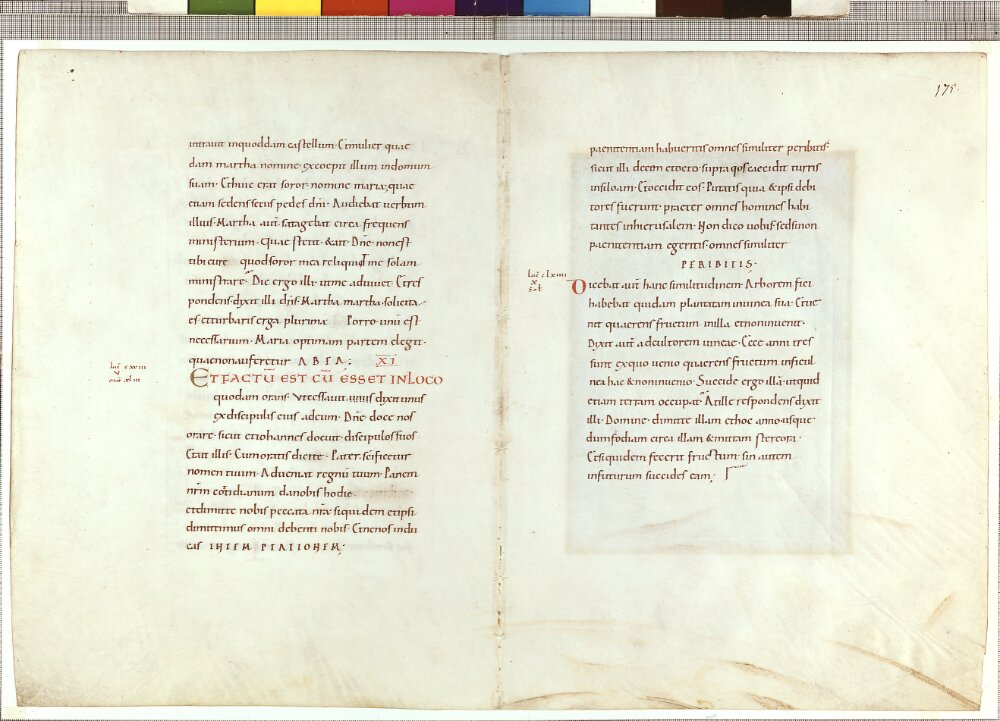 intrauit inquoddam castellum· Etmulier quae
dam martha nomine excoepit illum indomum
suam· Ethuic erat soror nomine maria· quae
etiam sedenssecus pedes dni· Audiebat uerbum
illius· Martha aut satagebat circa frequens
ministerium· Quae stetit· &ait· Dne· nonest
tibi cure quodsoror mea reliquid me solam
ministrare· Dic ergo illi· utme adiuuet· Etres
pondens dixit illi dns· Martha martha sollicita
es· etturbaris erga plurima· Porro unu est
necessarium· Maria optimam partem elegit·
quaenonauferetur ABEA; XI
luc cxxiii
v
mt xliii
ET FACTU EST CU ESSET IN LOCO
quodam orans· Utcessauit· unus dixit unus
exdiscipulis eius adeum· Dne· doce nos
orare· sicut etiohannes docuit discipulos suos·
Etait illis· Cumoratis dicite· Pater· scificetur
nomen tuum· Adueniat regnu tuum· Panem
nrm cotidianum danobis hodie·
etdimitte nobis peccata nra· siquidem etipsi
dimittimus omni debenti nobis· Etnenos indu
cas INTEMPTATIONEM·
178·
paenitentiam habueritis omnes similiter peribitis·
sicut illi decem etocto· supra quos cecidit turris
insiloam· Etoccidit eos· Putatis quia &ipsi debi
tores fuerunt· praeter omnes homines habi
tantes inhierusalem· Non dico uobis· sedsinon
paenitentiam egeritis· omnes similiter
PERIBITIS·
luc clxiiii
x
Dicebat aut hanc similitudinem· Arborem fici
habebat quidam plantatam inuinea sua· Etue
nit quaerens fructum inilla etnoninuenit·
Dixit aut adcultorem uineae· Ecce anni tres
sunt exquo uenio quaerens fructum inficul
nea hac &noninuenio· Succide ergo illa· utquid
etiam terram occupat· Atille respondens dixit
illi· Domine· dimitte illam ethoc anno· usque
dumfodiam circa illam &mittam stercora·
Etsiquidem fecerit fructum· sin autem
infuturum succides eam;